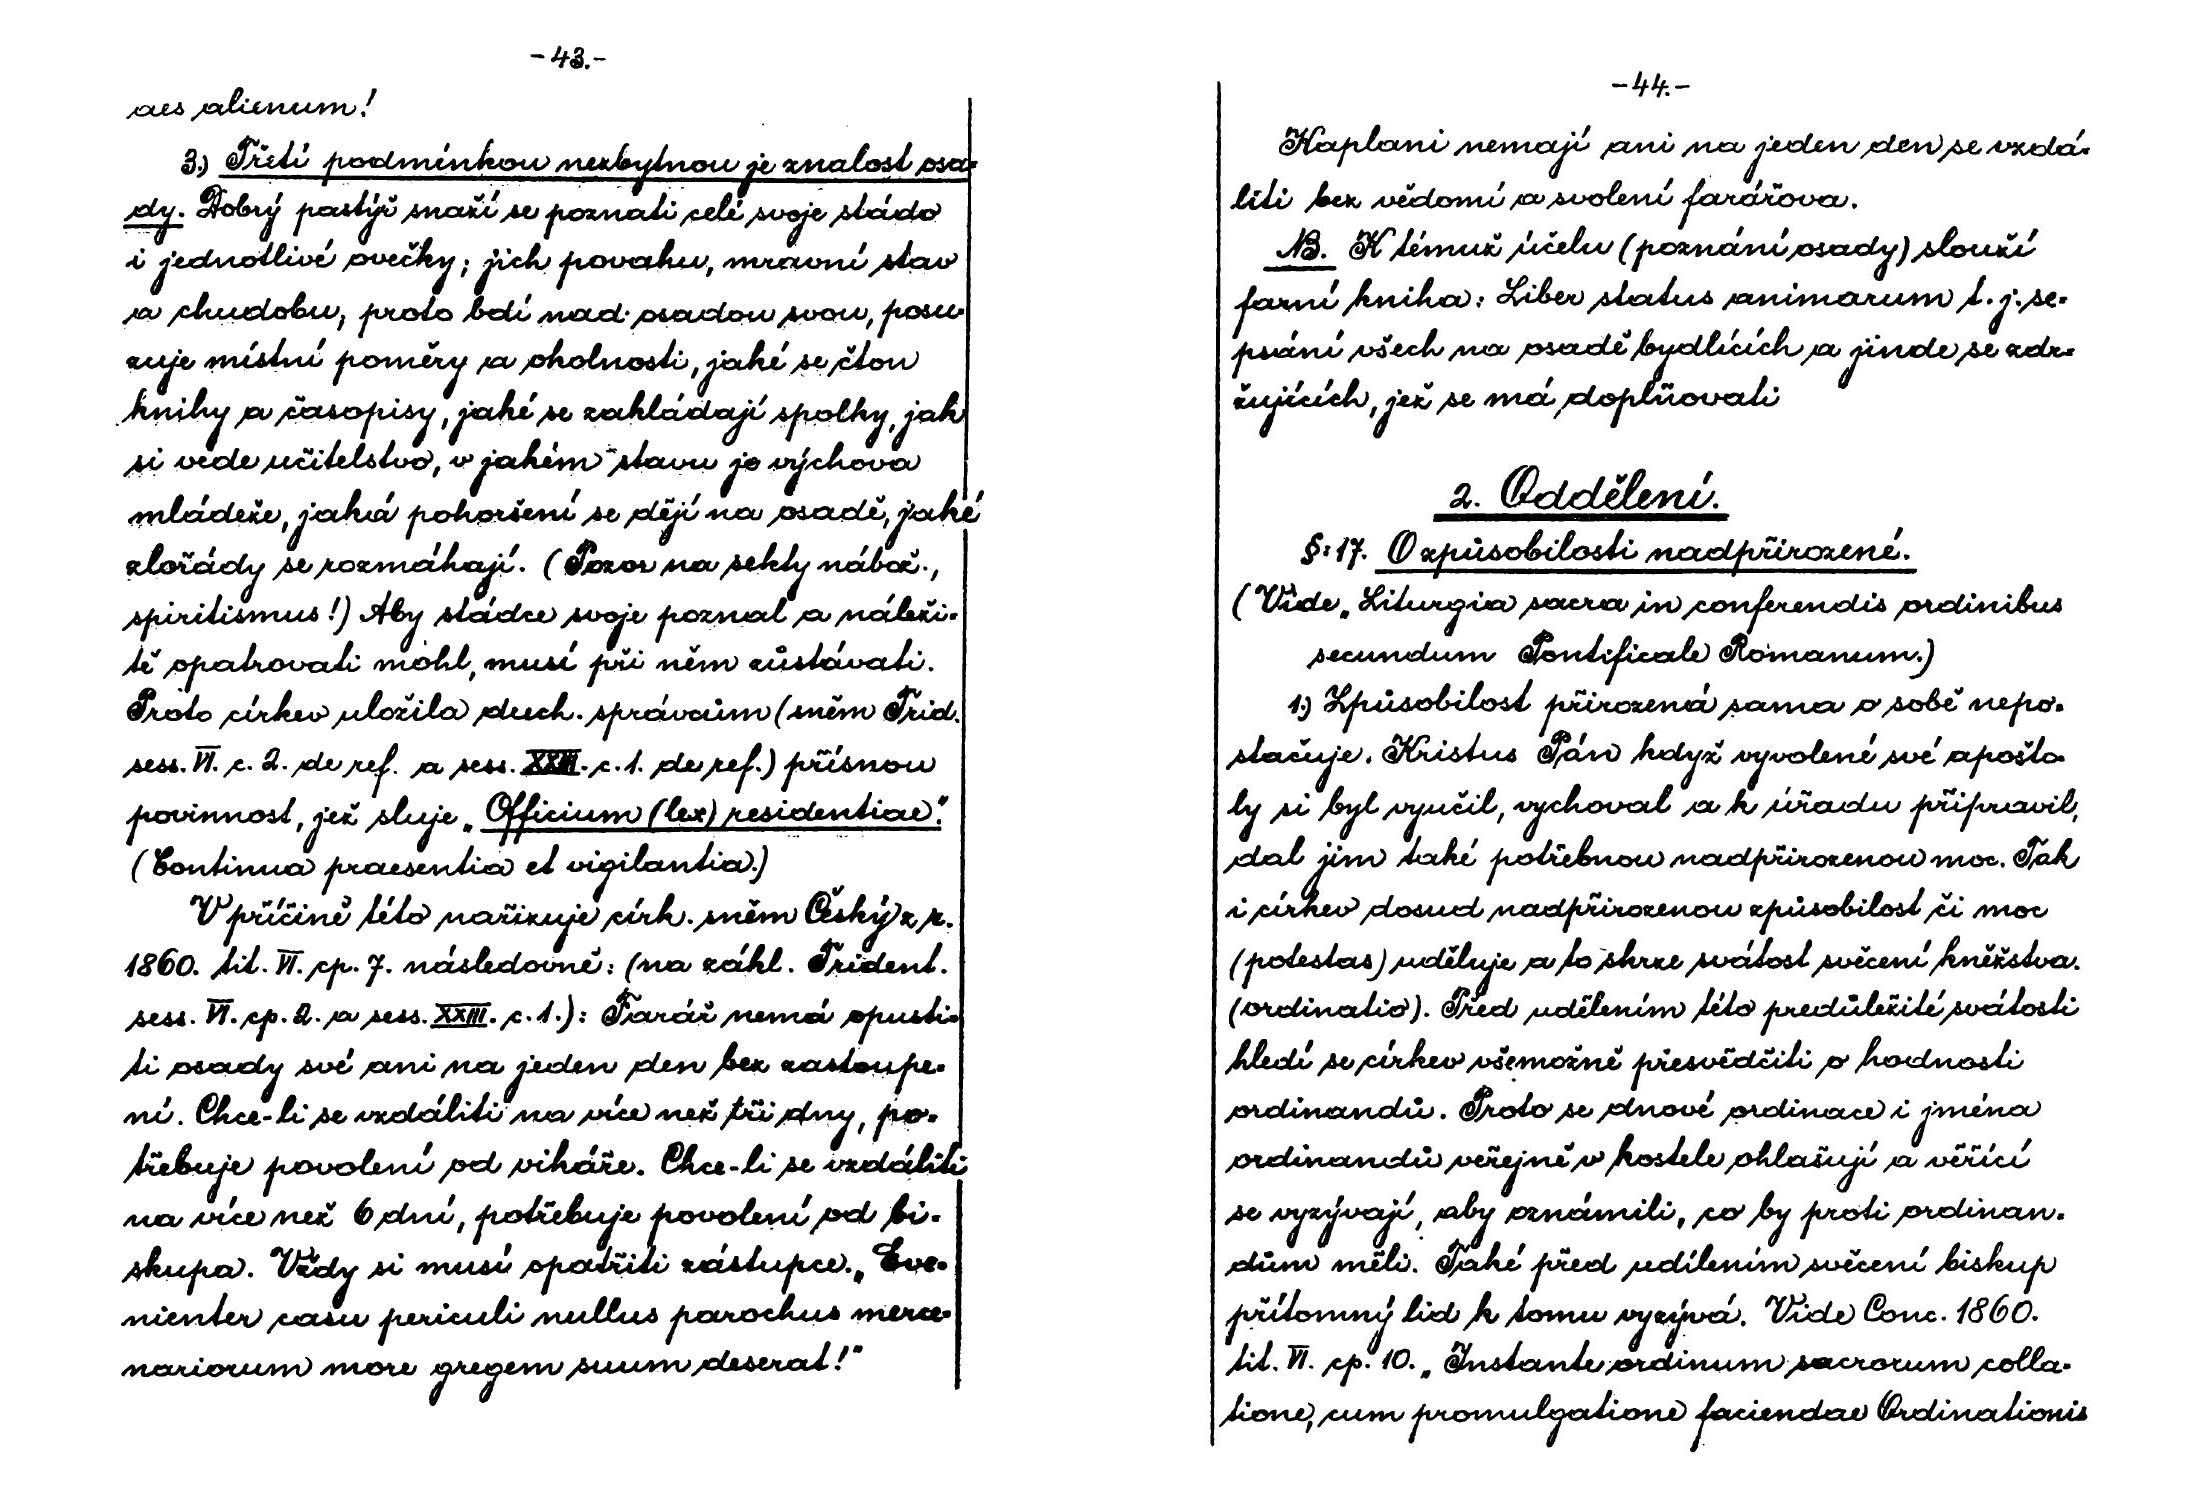 -43.-
aes alienum!
3.) Třetí podmínkou nezbytnou je znalost osa-
dy. Dobrý pastýř snaží se poznati celé svoje stádo
i jednotlivé ovečky; jich povahu, mravní stav
a chudobu, proto bdí nad osadou svou, posu-
zuje místní poměry a okolnosti, jaké se čtou
knihy a časopisy, jaké se zakládají spolky, jak
si vede učitelstvo, v jakém stavu je výchova
mládeže, jaká pohoršení se dějí na osadě, jaké
zlořády se rozmáhají. (Pozor na sekty nábož.,
spiritismus!) Aby stádce svoje poznal a náleži-
tě opatrovati mohl, musí při něm zůstávati.
Proto církev uložila duch. správcům (sněm Trid.
sess. VI. c. 2. de ref. a sess. XXIII. c. 1. de ref.) přísnou
povinnost, jež sluje „Officium (lex) residentiae".
(Continua praesentia et vigilantia.)
V příčině této nařizuje círk. sněm Český z r.
1860. tit. VI. cp. 7. následovně: (na zákl. Trident.
sess. VI. cp. 2. a sess. XXIII. c. 1.): Farář nemá opusti-
ti osady své ani na jeden den bez zastoupe-
ní. Chce-li se vzdáliti na více než tři dny, po-
třebuje povolení od vikáře. Chce-li se vzdáliti
na více než 6 dní, potřebuje povolení od bi-
skupa. Vždy si musí opatřiti zástupce. „Eve-
nienter casu periculi nullus parochus merce-
nariorum more gregem suum deserat!"
-44.-
Kaplani nemají ani na jeden den se vzdá-
liti bez vědomí a svolení farářova.
NB. K témuž účelu (poznání osady) slouží
farní kniha: Liber status animarum t. j. se-
psání všech na osadě bydlících a jinde se zdr-
žujících, jež se má doplňovati
2. Oddělení.
§: 17. O způsobilosti nadpřirozené.
(Vide „Liturgia sacra in conferendis ordinibus
secundum Pontificale Romanum.)
1.) Způsobilost přirozená sama o sobě nepo-
stačuje. Kristus Pán když vyvolené své apošto-
ly si byl vyučil, vychoval a k úřadu připravil,
dal jim také potřebnou nadpřirozenou moc. Tak
i církev dosud nadpřirozenou způsobilost či moc
(potestas) uděluje a to skrze svátost svěcení kněžstva.
(ordinatio). Před udělením této předůležité svátosti
hledí se církev všemožně přesvědčiti o hodnosti
ordinandů. Proto se dnové ordinace i jména
ordinandů veřejně v kostele ohlašují a věřící
se vyzývají, aby oznámili, co by proti ordinan-
dům měli. Také před udílením svěcení biskup
přítomný lid k tomu vyzývá. Vide Conc. 1860.
tit. VI. cp. 10. „Instante ordinum sacrorum colla-
tione, cum promulgatione faciendae Ordinationis